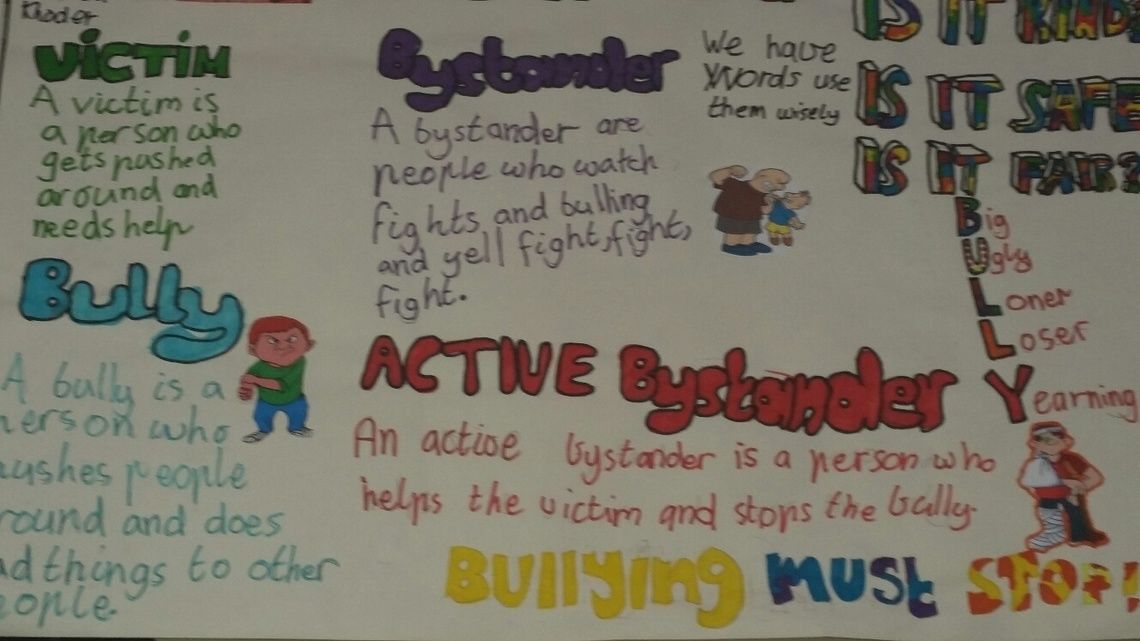 Khoder
VICTIM
A victim is
a person who
gets pushed
around and
needs help
Bully
A bully is a
person who
pushes people
round and does
ad things to other
eople.
Bystander
A bystander are
people who watch
fights and bulling
and yell fight, fight,
fight.
We have
Words use
them wisely
IS IT KIND?
IS IT SAFE
IS IT FAIR?
Big
Ugly
Loner
Loser
Yearning
ACTIVE Bystander
An active bystander is a person who
helps the victim and stops the bully.
BULLYing MUST STOP!